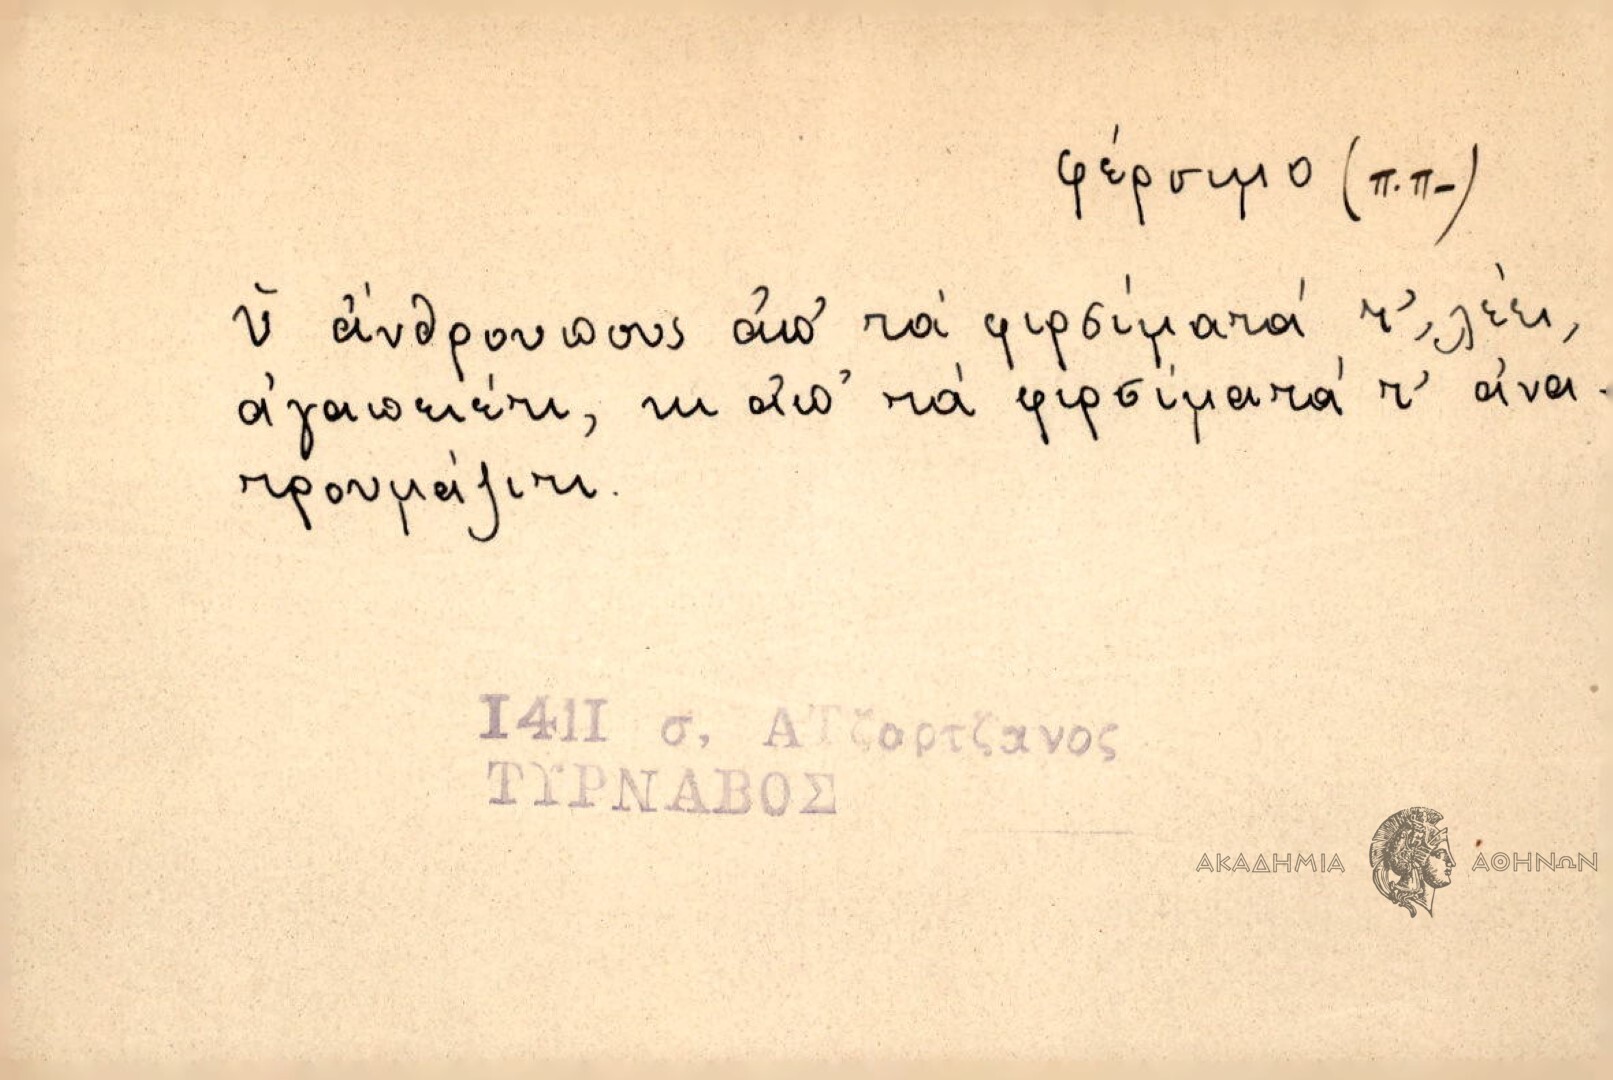 φέρσιμο (π.π-)
ὓ ἄνθρουπους ἀπ' τά φιρσίματά τ', λέει,
ἀγαπειέτι, κι ἀπ' τά φιρσίματά τ' ἀνα-
τρουμάζιτι.
1411 σ. ΑΤζορτζανος
ΤΥΡΝΑΒΟΣ
ΑΚΑΔΗΜΙΑ ΑΘΗΝΩΝ